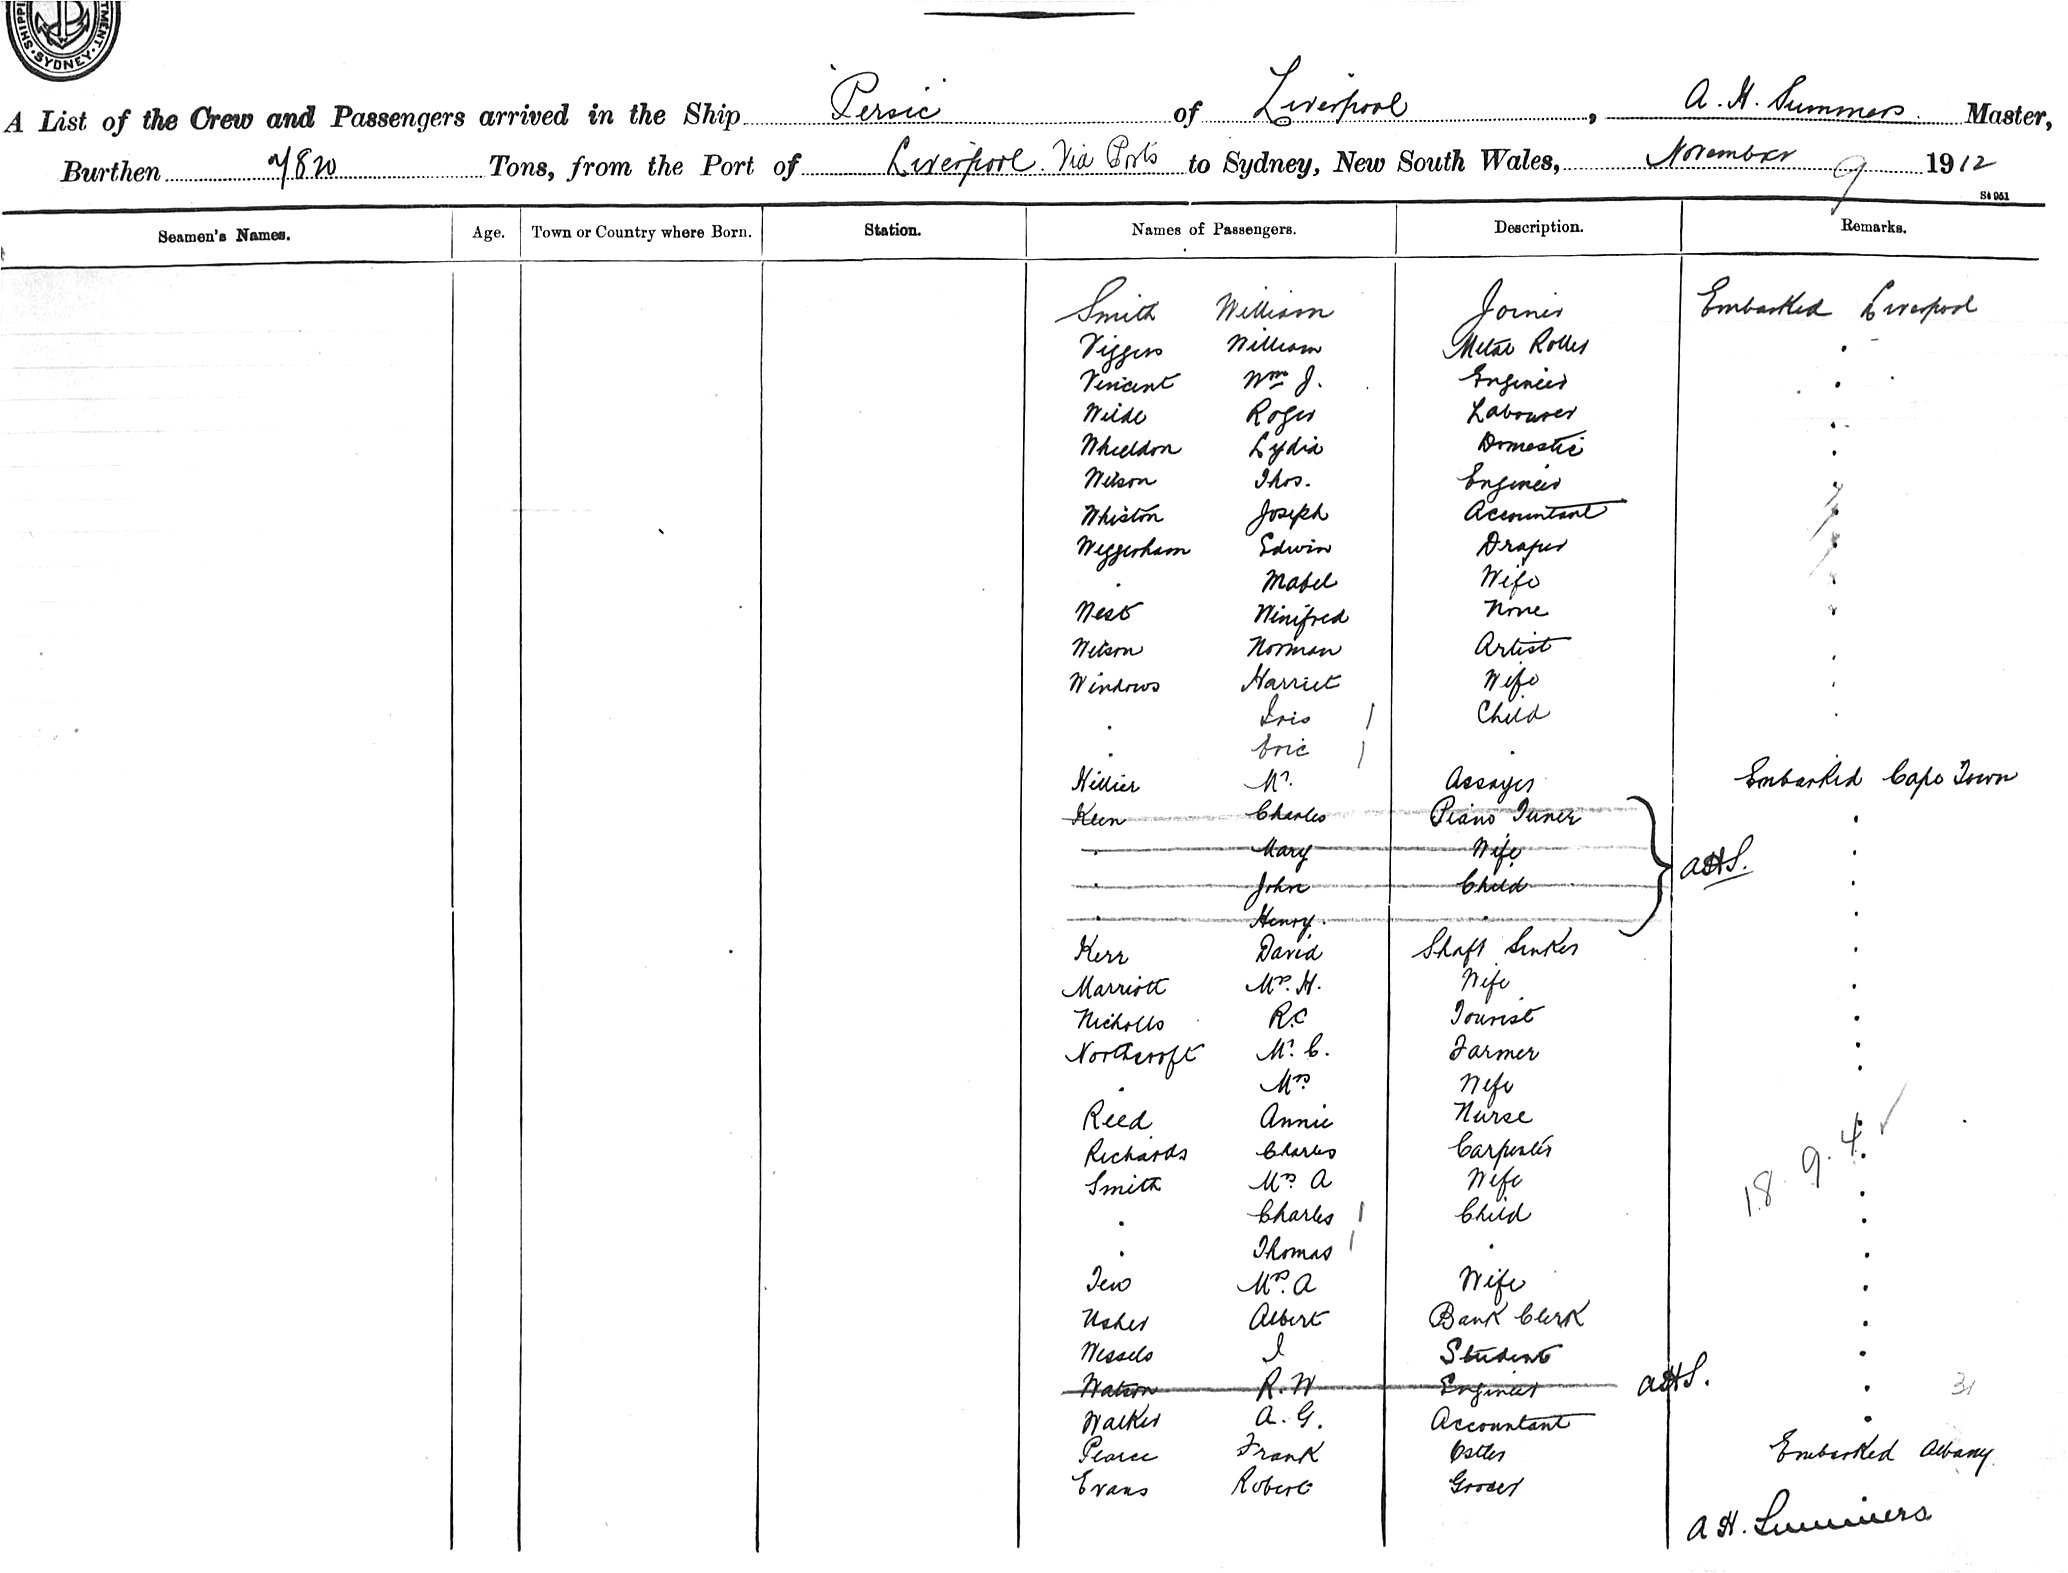 SHIPPI TMENT. SYDNEY.
A List of the Crew and Passengers arrived in the Ship Persic of Liverpool, A. H. Summers Master,
Burthen 7820 Tons, from the Port of Liverpool Via Ports to Sydney, New South Wales, November 9 1912
St 951
Seamen's Names. Age. Town or Country where Born. Station. Names of Passengers. Description. Remarks.
Smith William Joiner Embarked Liverpool
Viggers William Metal Roller
Vincent Wm J. Engineer
Wilde Roger Labourer
Wheeldon Lydia Domestic
Wilson Thos. Engineer
Whiston Joseph Accountant
Weggerham Edwin Draper
Mabel Wife
West Winifred None
Wilson Norman Artist
Windows Harriet Wife
Iris 1 Child
Eric 1
Hillier Mr. Assayer Embarked Cape Town
Keen Charles Piano Tuner
Mary Wife
John Child
AHS.
Henry.
Kerr David Shaft Sinker
Marriott Mrs. H. Wife
Nicholls R.C Tourist
Northcroft Mr. C. Farmer
Mrs Wife
Reed Annie Nurse
Richards Charles Carpenter
18. 9. 4
Smith Mrs A Wife
Charles 1 Child
Thomas 1
Tew Mrs. A Wife
Usher Albert Bank Clerk
Wessels I Student
Watson R. W Engineer AHS. 31
Walker A. G. Accountant
Pearce Frank Ostler Embarked Albany
Evans Robert Grocer
A H. Summers